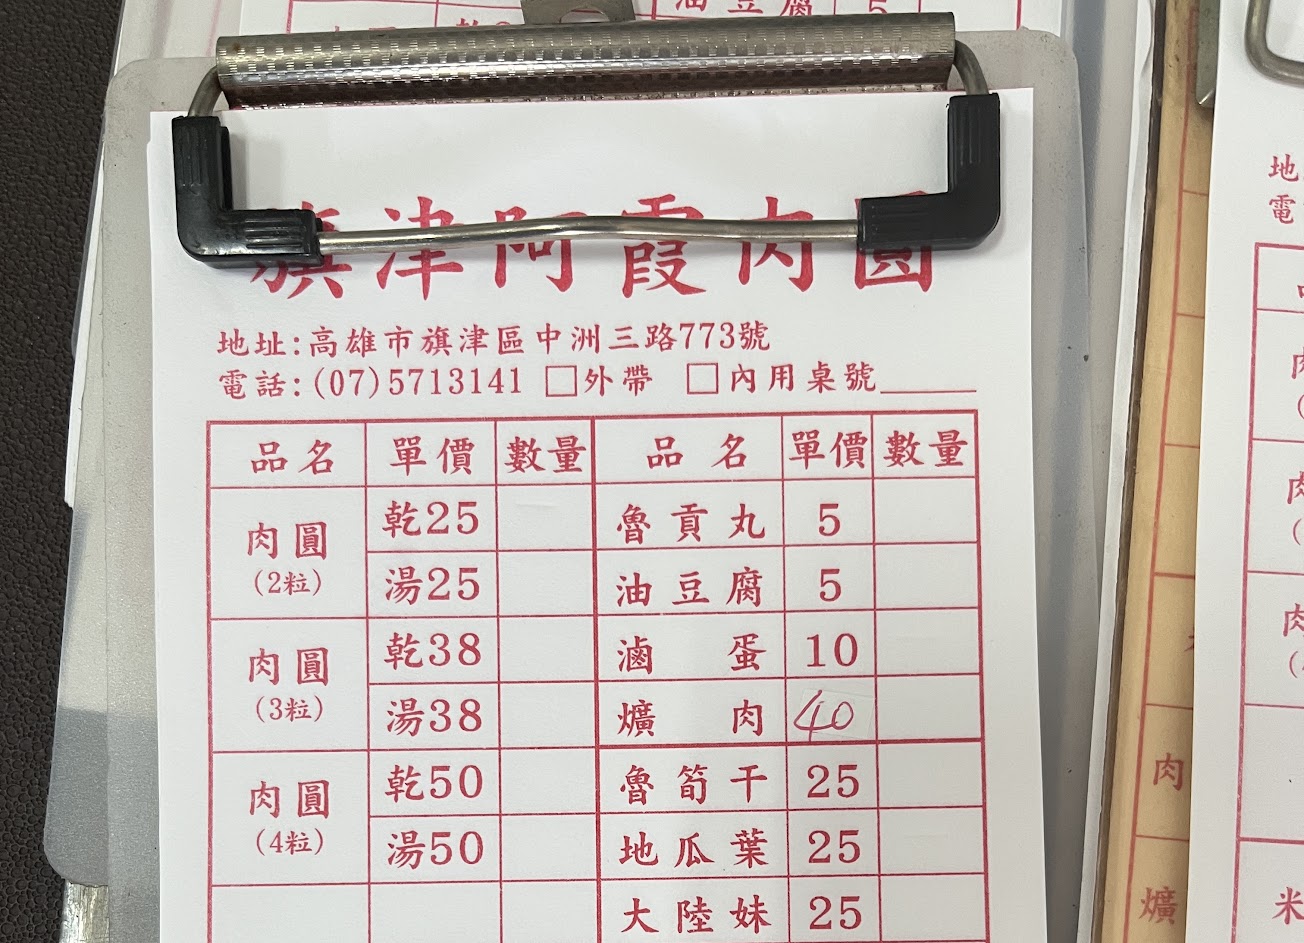 旗津阿霞肉圓
地址:高雄市旗津區中洲三路773號
電話:(07)5713141 □外帶 □內用桌號______
品名 單價 數量 品名 單價 數量
肉圓(2粒) 乾25 魯貢丸 5
湯25 油豆腐 5
肉圓(3粒) 乾38 滷蛋 10
湯38 爌肉 40
肉圓(4粒) 乾50 魯筍干 25
湯50 地瓜葉 25
大陸妹 25
油豆腐 5
地
電
肉
爌
米